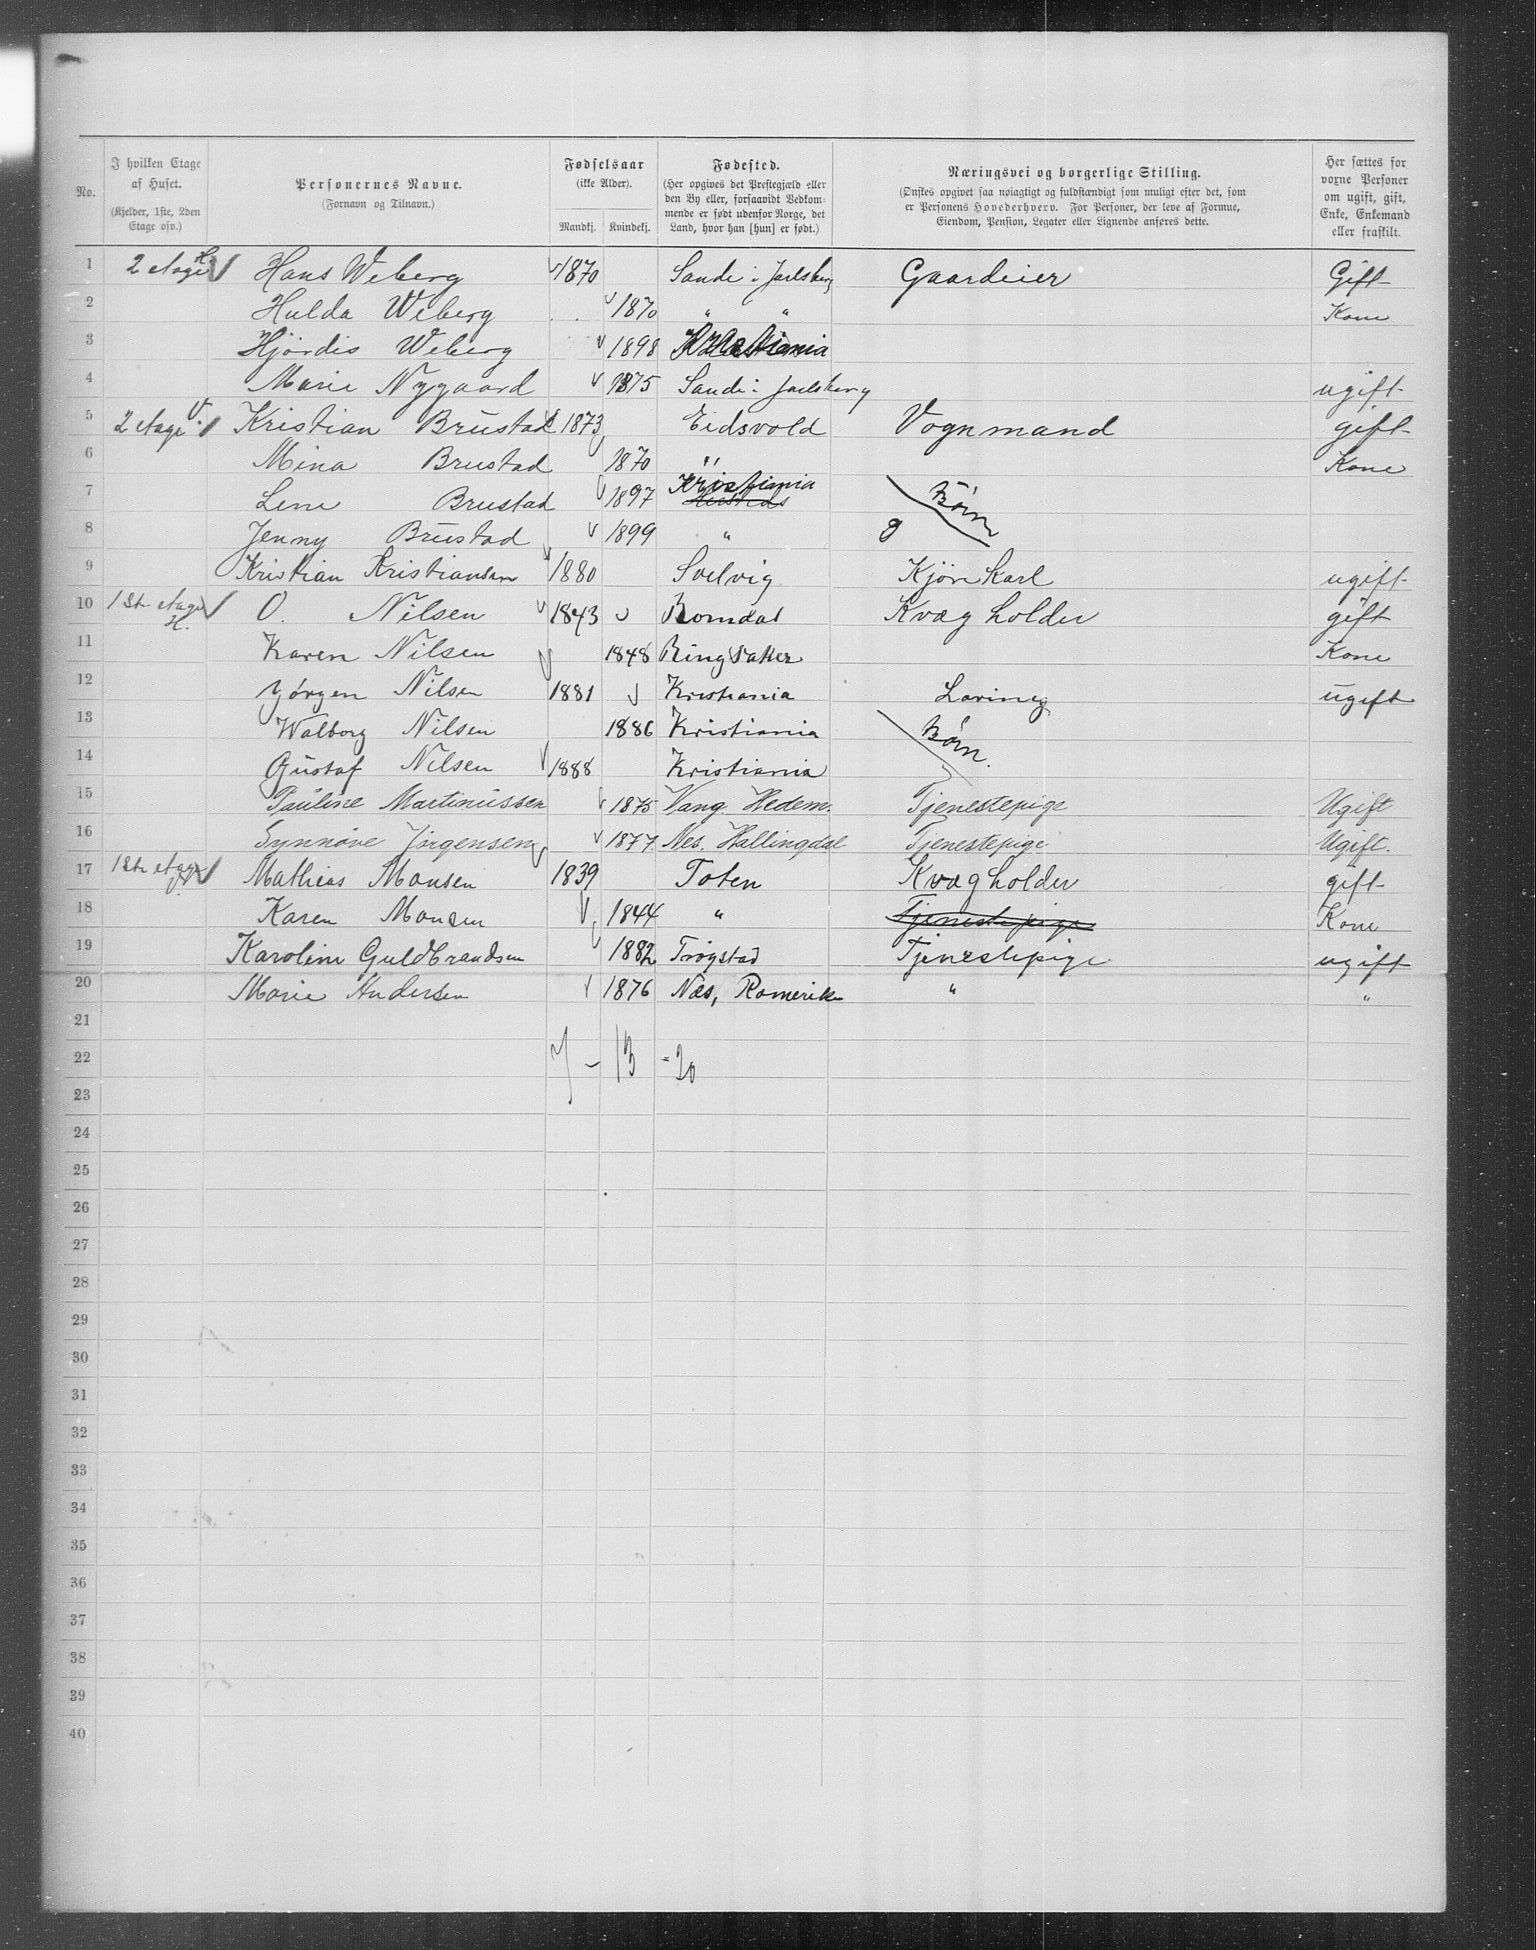 No.	I hvilken Etage af Huset. (Kjelder, 1ste, 2den Etage osv.)	Personernes Navne. (Fornavn og Tilnavn.)	Fødselsaar (ikke Alder). Mandkj.	Kvindekj.	Fødested. (Her opgives det Prestegjæld eller den By eller, forsaavidt Vedkommende er født udenfor Norge, det Land, hvor han [hun] er født.)	Næringsvei og borgerlige Stilling. (Ønskes opgivet saa nøiagtigt og fuldstændigt som muligt efter det, som er Personens Hovederhverv. For Personer, der leve af Formue, Eiendom, Pension, Legater eller Lignende anføres dette.)	Her sættes for voxne Personer om ugift, gift, Enke, Enkemand eller fraskilt.
1 2 etage H Hans Weberg 1870 Sande i Jarlsberg Gaardeier Gift
2 Hulda Weberg 1870 " " Kone
3 Hjördis Weberg 1898 Kristiania
4 Marie Nygaard 1875 Sande i Jarlsberg ugift
5 2 etage V. Kristian Brustad 1873 Eidsvold Vognmand gift
6 Mina Brustad 1870 " Kone
7 Lene Brustad 1897 Kristiania Börn
8 Jenny Brustad 1899 "
9 Kristian Kristiansen 1880 Svelvig Kjörekarl ugift
10 1ste etage H. O. Nilsen 1843 Romdal Kvægholder gift
11 Karen Nilsen 1848 Ringsaker Kone
12 Jörgen Nilsen 1881 Kristiania ugift
13 Walborg Nilsen 1886 Kristiania Börn.
14 Gustaf Nilsen 1888 Kristiania
15 Pauline Martinussen 1875 Vang Hedem. Tjenestepige Ugift
16 Synnöve Jörgensen 1877. Nes. Hallingdal Tjenestepige Ugift.
17 1ste etage V. Mathias Monsen 1839 Toten Kvægholder gift
18 Karen Monsen 1844 " Tjenestepige Kone
19 Karoline Guldbrandsen 1882 Trögstad Tjenestepige ugift
20 Marie Andersen 1876 Næs, Romerike " "
21
22 7 - 13 = 20
23
24
25
26
27
28
29
30
31
32
33
34
35
36
37
38
39
40